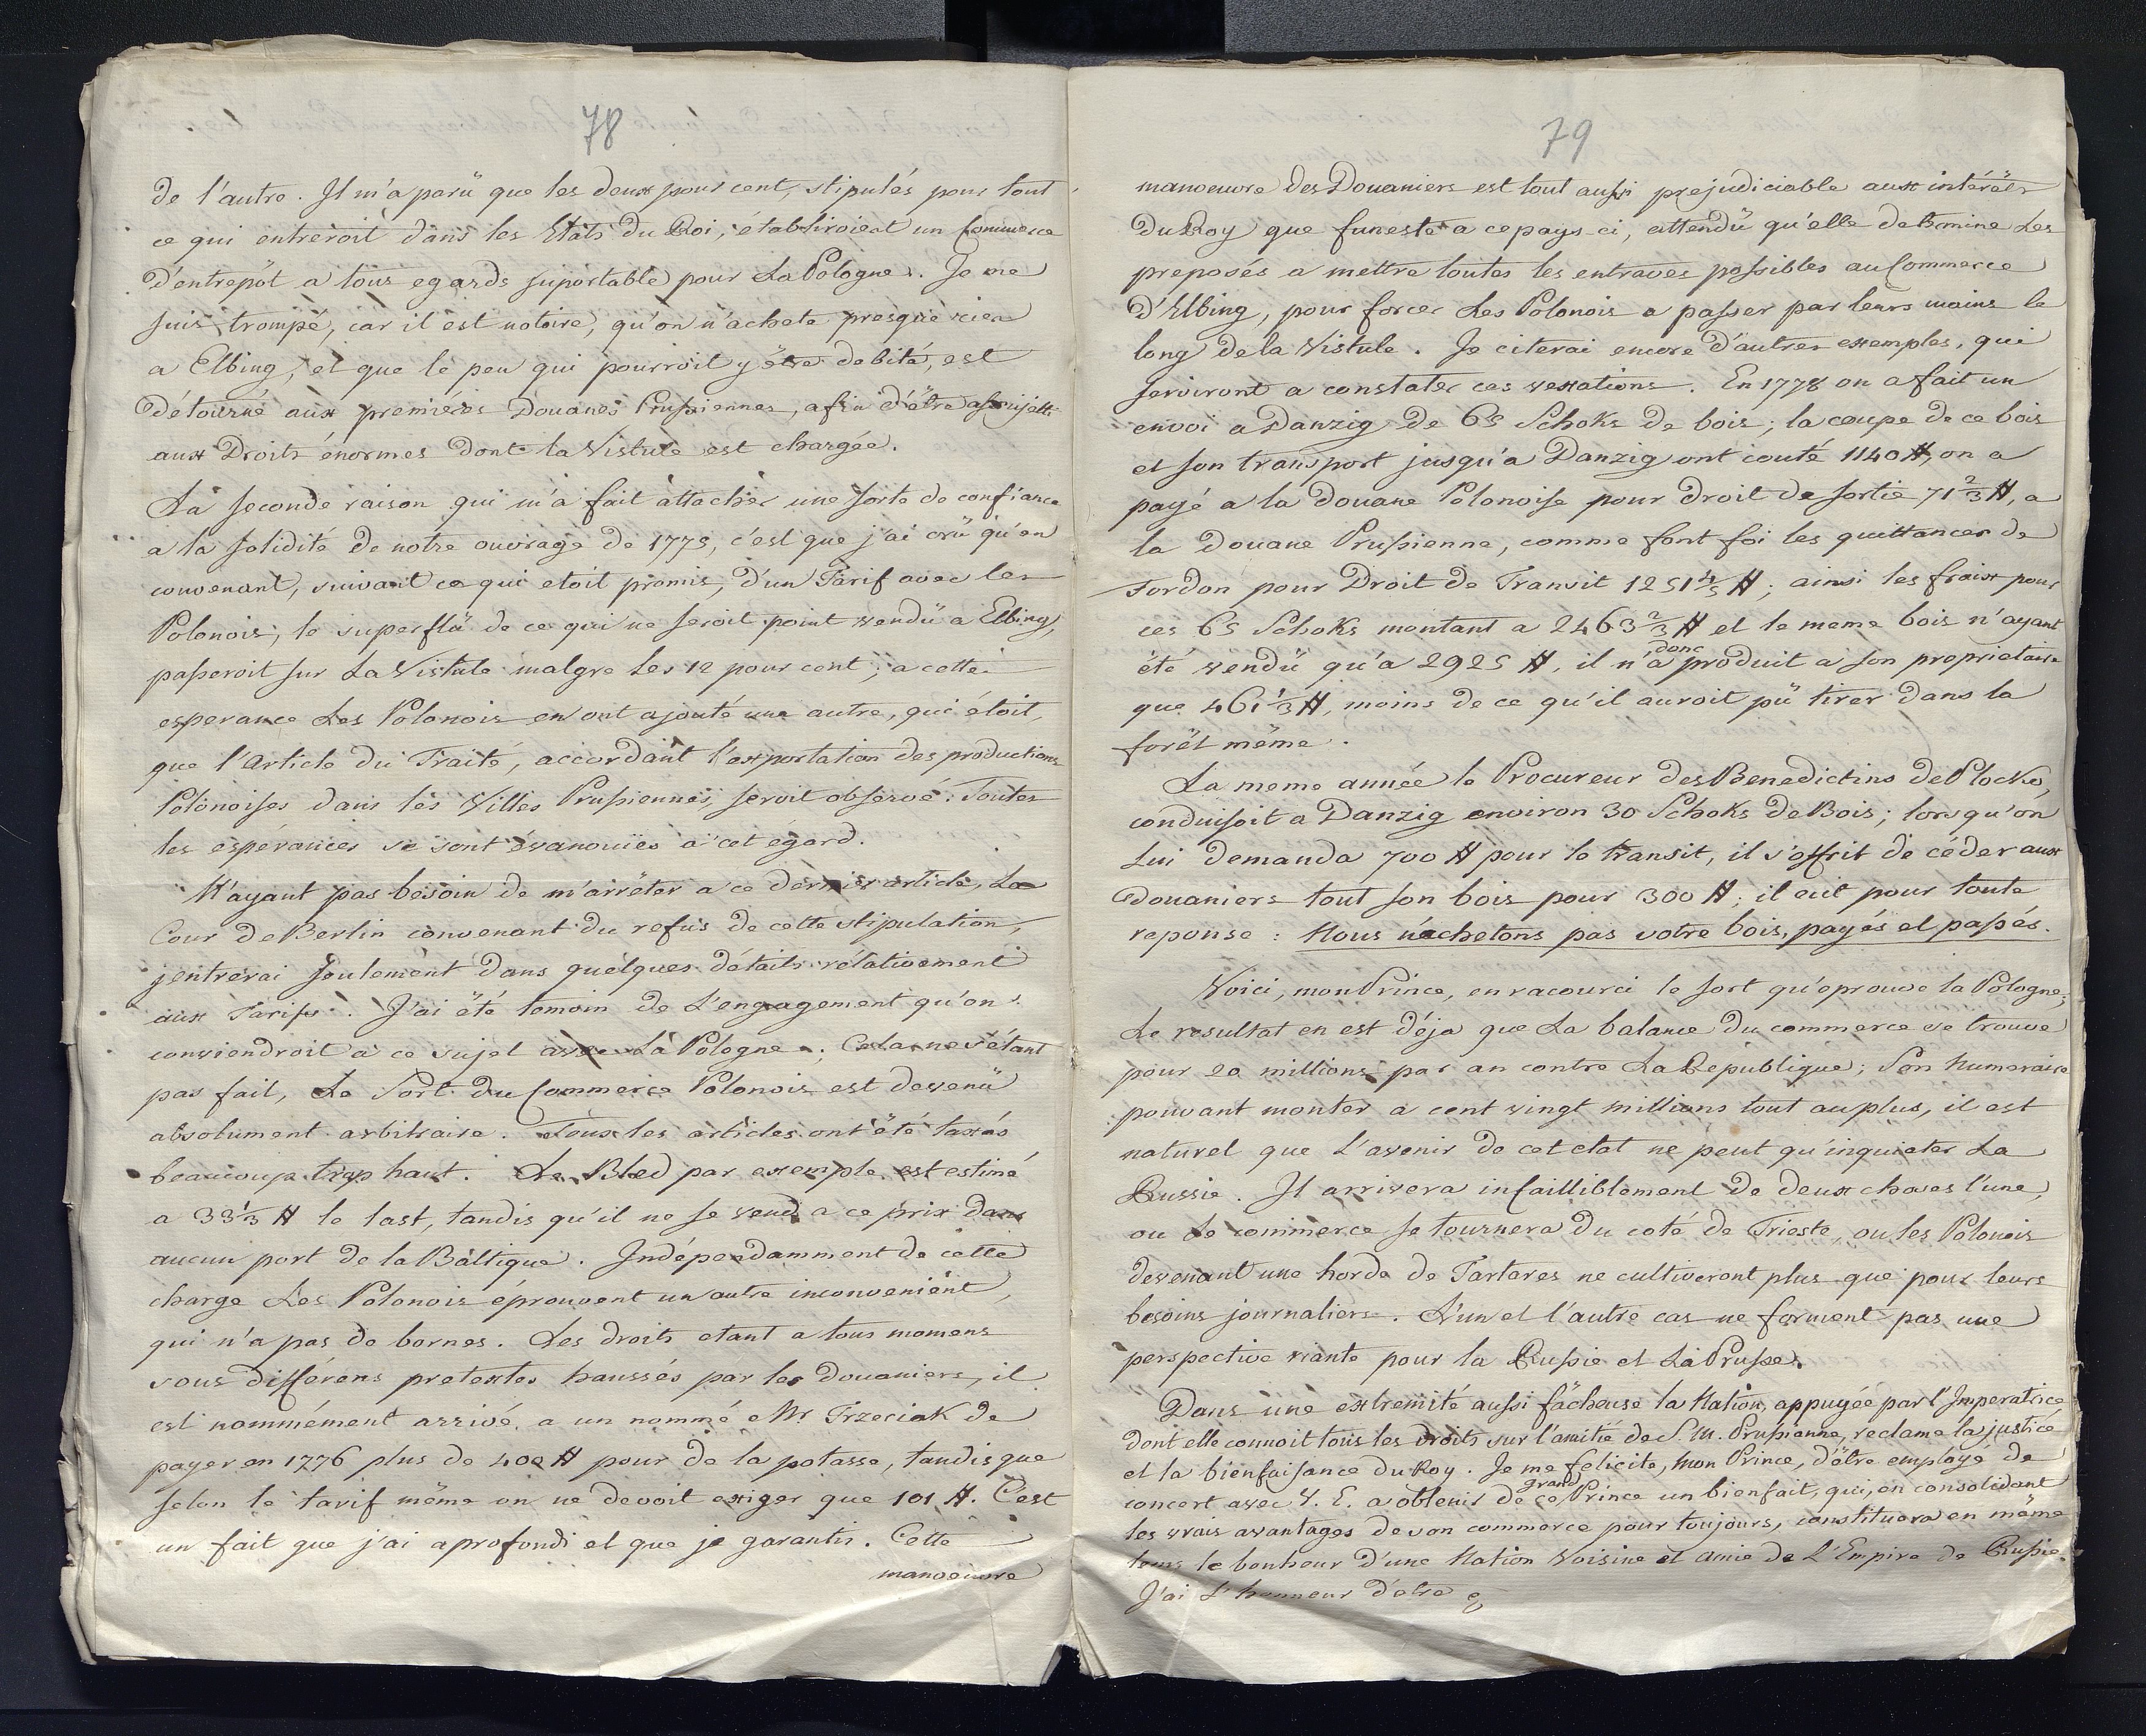 78
de l'autre. Il m'a parü que les deux pour cent, stipulés pour tout
ce qui entreroit dans les Etats du Roi, établiroient un Commerce
d'entrepôt a tous egards suportable pour La Pologne. Je me
suis trompé, car il est notoire, qu'on n'achete presque rien
a Elbing, et que le peu qui pourroit y être debité, est
détourné aux premiéres Douanes Prussiennes, afin d'être assujetti
aux Droits énormes dont la Vistule est chargée.
La seconde raison qui m'a fait attacher une sorte de confiance
a la solidité de notre ouvrage de 1775, c'est que j'ai crü qu'en
convenant, suivant ce qui etoit promis, d'un Tarif avec les
Polonois, le superflü de ce qui ne seroit point vendü a Elbing,
passeroit sur La Vistule malgre les 12 pour cent; a cette
esperance Les Polonois en ont ajouté une autre, qui étoit,
que l'Article du Traité, accordant l'exportation des productions
Polonoises dans les Villes Prussiennes, seroit observé. Toutes
les espérances se sont évanouïes a cet égard.
N'ayant pas besoin de m'arrêter a ce dernier article, La
Cour de Berlin convenant du refus de cette stipulation,
j'entrerai seulement dans quelques détails rélativement
aux Tarifs. J'ai êté temoin de L'engagement qu'on
conviendroit a ce sujet avec La Pologne; Cela ne s'étant
pas fait, Le Sort du Commerce Polonois est devenü
absolument arbitraire. Tous les articles ont êté taxés
beaucoup trop haut. Le Bled par exemple est estimé
a 33⅓ # le last, tandis qu'il ne se vend a ce prix dans
aucun port de la Baltique. Indépendamment de cette
charge Les Polonois éprouvent un autre inconvenient,
qui n'a pas de bornes. Les droits etant a tous momens
sous différens pretextes haussés par les Douaniers, il
est nommément arrivé a un nommé Mr Trzeciak de
payer en 1776 plus de 400 # pour de la potasse, tandis que
selon le tarif même on ne devoit exiger que 101 #. C'est
un fait que j'ai aprofondi et que je garantis. Cette
manoeuvre
79
manoeuvre des Douaniers est tout aussi prejudiciable aux intérêts
du Roy que funeste a ce pays-ci, attendü qu'elle determine Les
preposés a mettre toutes les entraves possibles au Commerce
d'Elbing, pour forcer Les Polonois a passer par leurs mains le
long de la Vistule. Je citerai encore d'autres exemples, qui
serviront a constater ces vexations. En 1778 on a fait un
envoi a Danzig de 65 Schoks de bois; la coupe de ce bois
et son transport jusqu'a Danzig ont couté 1140 #, on a
payé a la Douane Polonoise pour droit de sortie 71⅔ #, a
la Douane Prussienne, comme font foi les quittances de
Fordon pour Droit de Transit 1251⅘ #; ainsi les fraix pour
ces 65 Schoks montant a 2463⅔ # et le meme bois n'ayant
êté vendü qu'a 2925 #, il n'a donc produit a son proprietaire
que 461⅓ #, moins de ce qu'il auroit pü tirer dans la
forêt même.
La meme année le Procureur des Benedictins de Plocko,
conduisoit a Danzig environ 30 Schoks de Bois; lorsqu'on
Lui demanda 700 # pour le transit, il s'offrit de céder aux
Douaniers tout son bois pour 300 #; il eut pour toute
reponse: Nous n'achetons pas votre bois, payés et passés.
Voici, mon Prince, en racourci le sort qu'eprouve la Pologne;
Le resultat en est déja que La balance du commerce se trouve
pour 20 millions par an contre La Republique; Son Numeraire
pouvant monter a cent vingt millions tout au plus, il est
naturel que L'avenir de cet etat ne peut qu'inquieter La
Russie. Il arrivera infailliblement de deux choses l'une,
ou Le commerce se tournera du coté de Trieste, ou les Polonois
devenant une horde de Tartares ne cultiveront plus que pour leurs
besoins journaliers. L'un et l'autre cas ne forment pas une
perspective riante pour la Russie et La Prusse.
Dans une extremité aussi fâcheuse la Nation, appuyée par l'Imperatrice
dont elle connoit tous les droits sur l'amitié de S. M. Prussienne, reclame la justice
et la bienfaisance du Roy. Je me felicite, mon Prince, d'être employé de
concert avec V. E. a obtenir de ce grand Prince un bienfait, qui, en consolidant
les vrais avantages de son commerce pour toujours, constituera en même
tems le bonheur d'une Nation Voisine et amie de L'Empire de Russie.
J'ai L'honneur d'etre